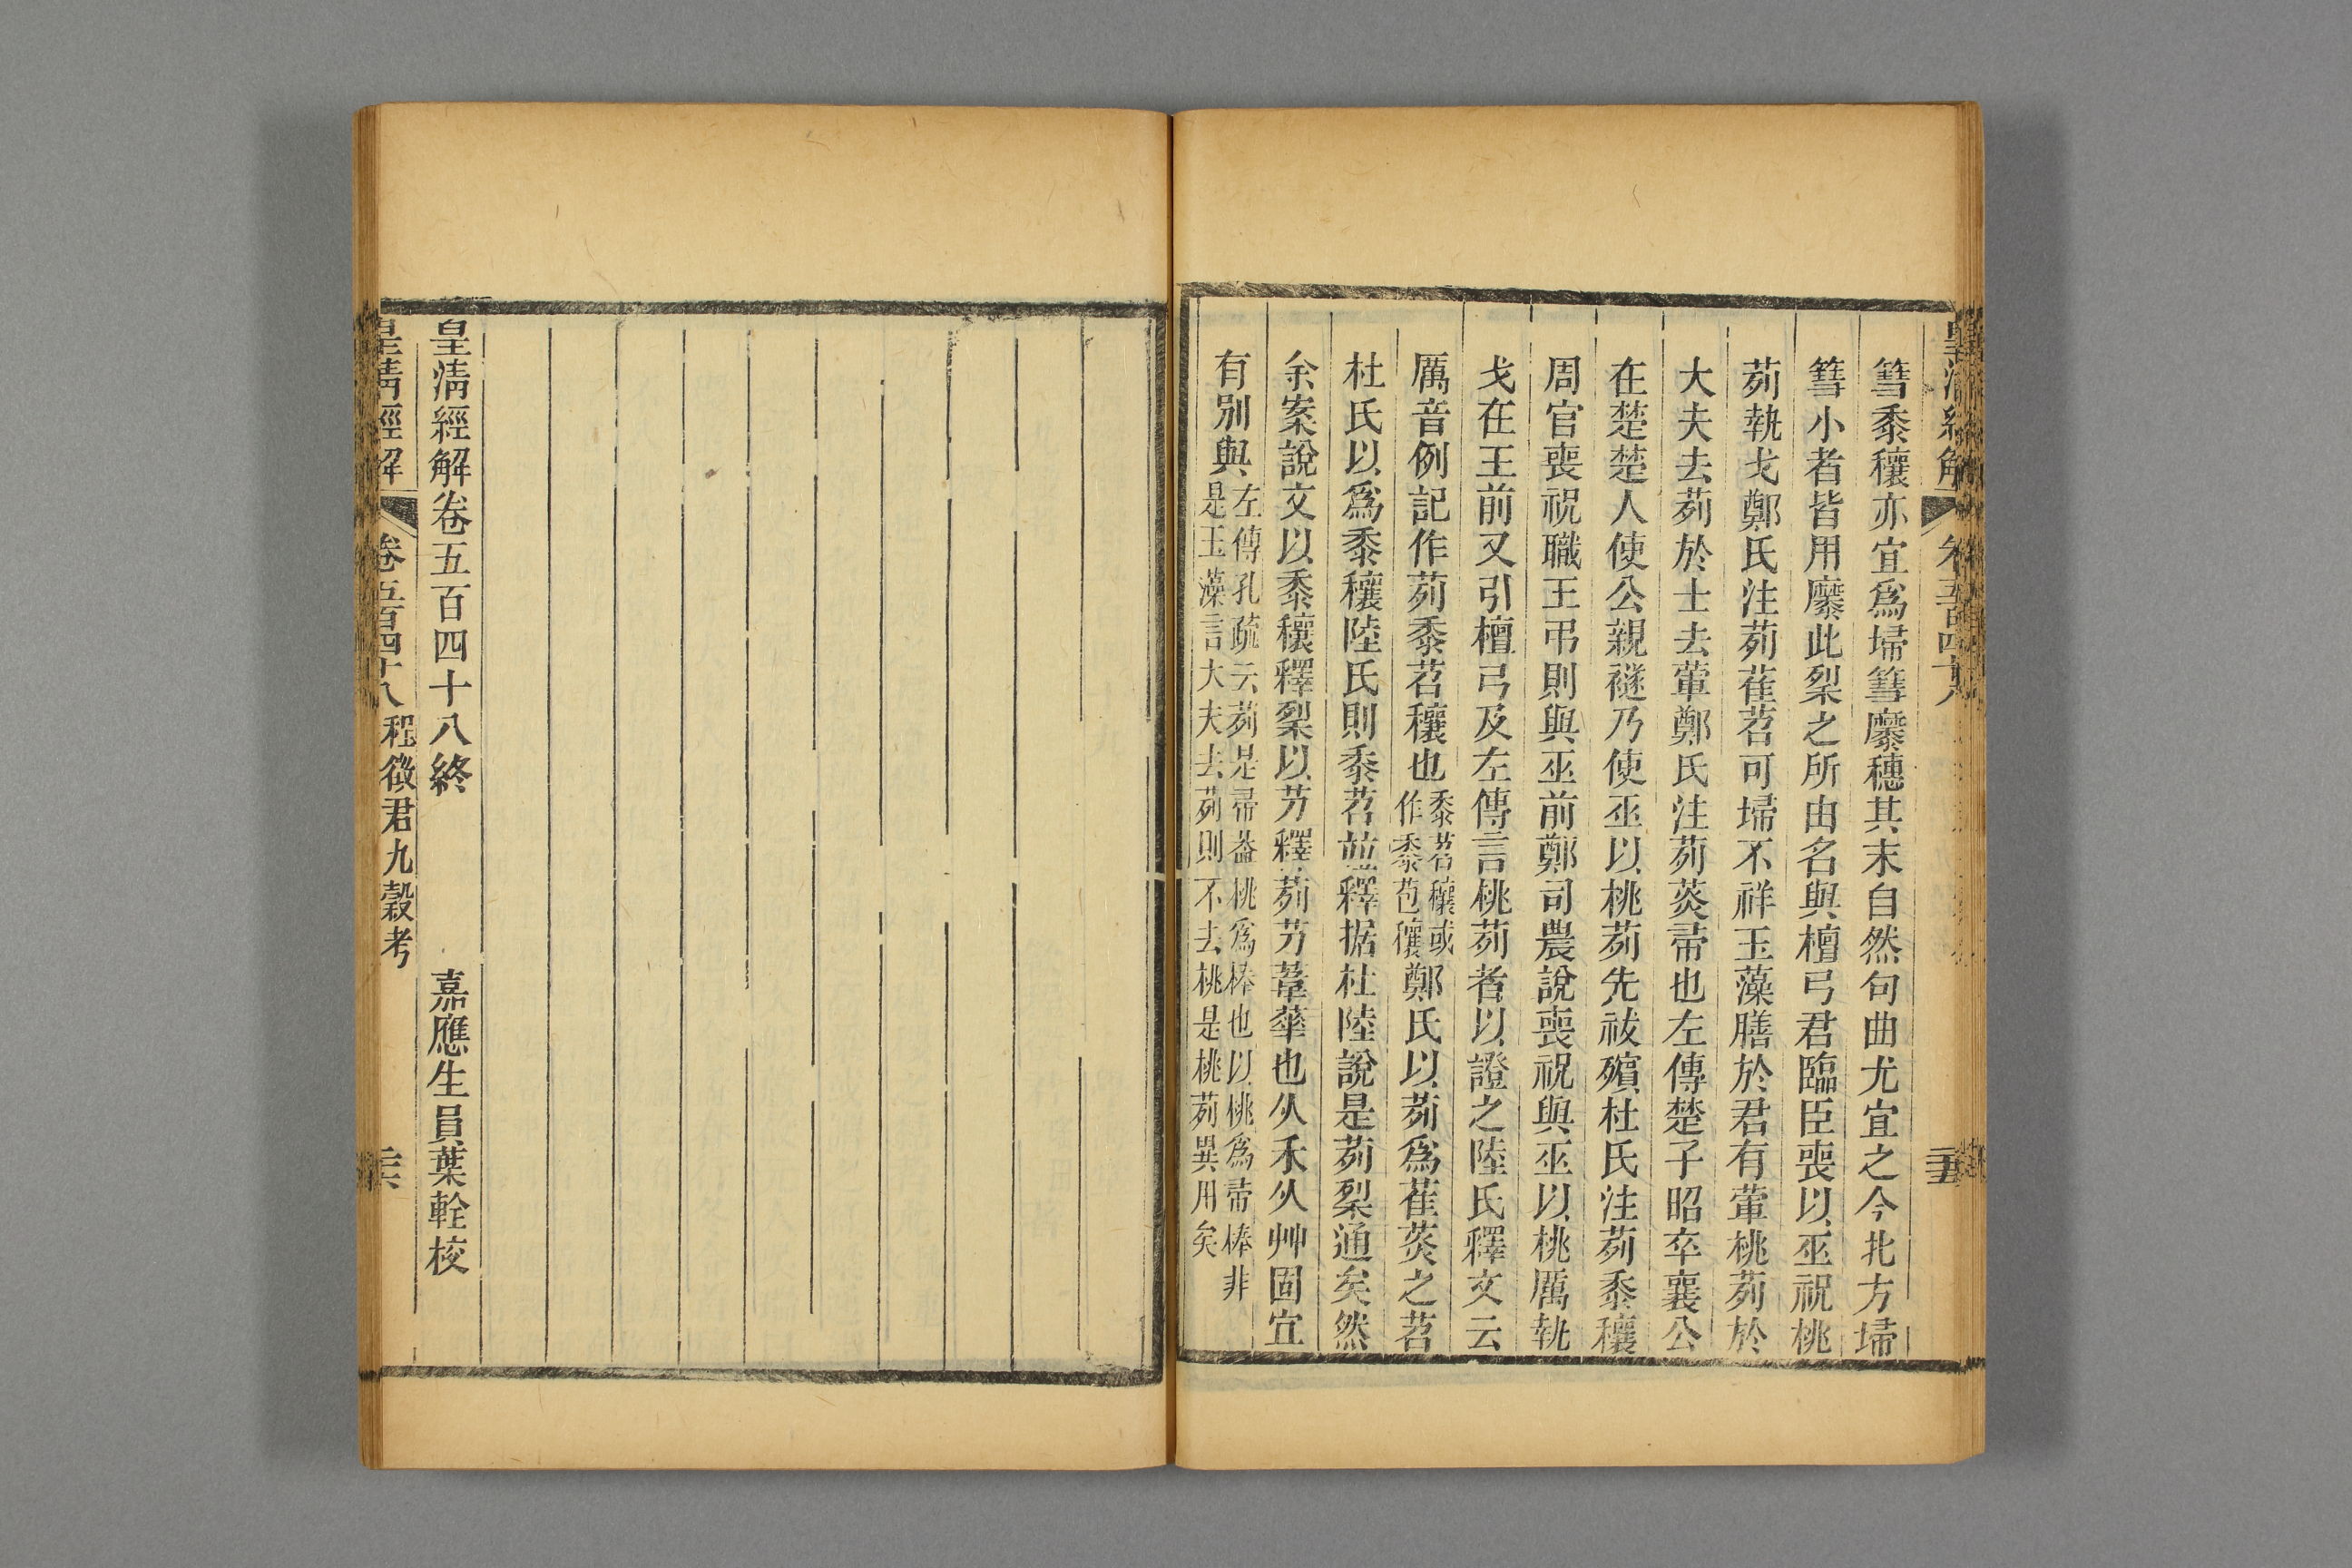 篲黍穰亦宜爲埽篲穈穗其末自然句曲尤宜之今北方埽
篲小者皆用穈此梨之所由名與檀弓君臨臣喪以巫祝桃
茢執戈鄭氏注茢萑苕可埽不祥玉藻膳於君有葷桃茢於
大夫去茢於士去葷鄭氏注茢菼帚也左傳楚子昭卒襄公
在楚楚人使公親襚乃使巫以桃茢先祓殯杜氏注茢黍穰
周官喪祝職王弔則與巫前鄭司農說喪祝與巫以桃厲執
戈在王前又引檀弓及左傳言桃茢者以證之陸氏釋文云
厲音例記作茢黍苕穰也黍苕穰或作黍苞穰鄭氏以茢爲萑菼之苕
杜氏以爲黍穰陸氏則黍苕並釋据杜陸說是茢梨通矣然
余案說文以黍穰釋梨以芀釋茢芀葦華也从禾从艸固宜
有別與左傳孔疏云茢是帚葢桃爲棒也以桃爲帚棒非是玉藻言大夫去茢則不去桃是桃茢異用矣
皇清經解卷五百四十八終 嘉應生員葉輇校
皇清經解 卷五百四十八 程徵君九穀考 三六